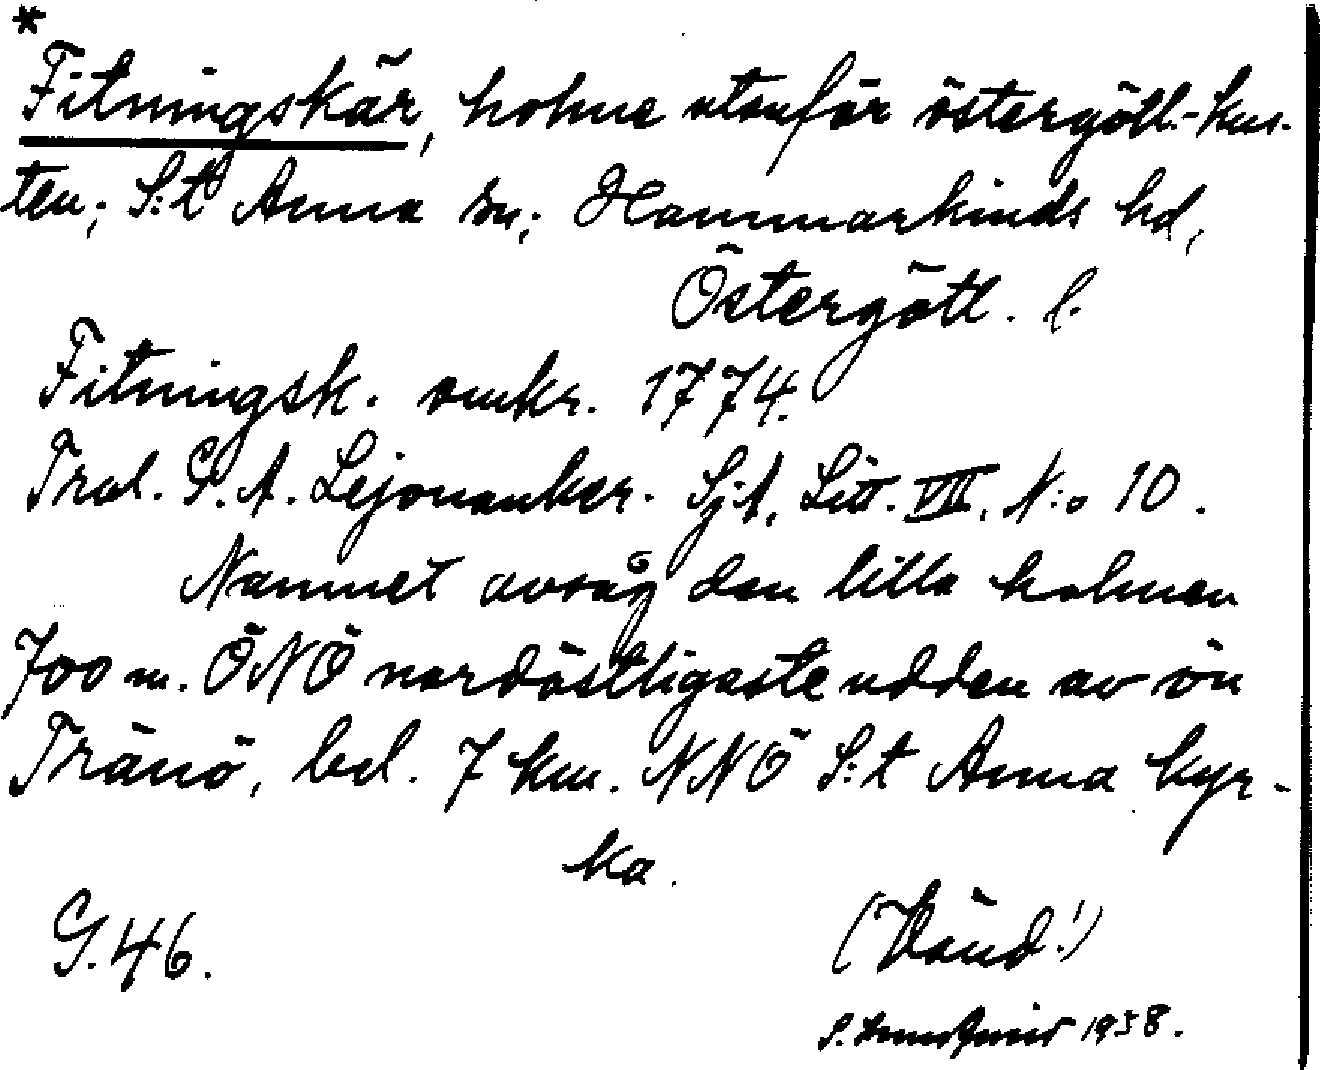 *
Fitningskär, holme utanför östergötl.-kus-
ten; S:t Anna sn; Hammarkinds hd,
Östergötl. l.
Fitningsk. omkr. 1774.
Trol. G. A. Lejonanker. Sj.A, Litt. VII, N:o 10.
Namnet avsåg den lilla holmen
700 m. ÖNÖ nordöstligaste udden av ön
Tränö, bel. 7 km. NNÖ S:t Anna kyr-
ka.
G. 46.
(Vänd!)
S. 1938.